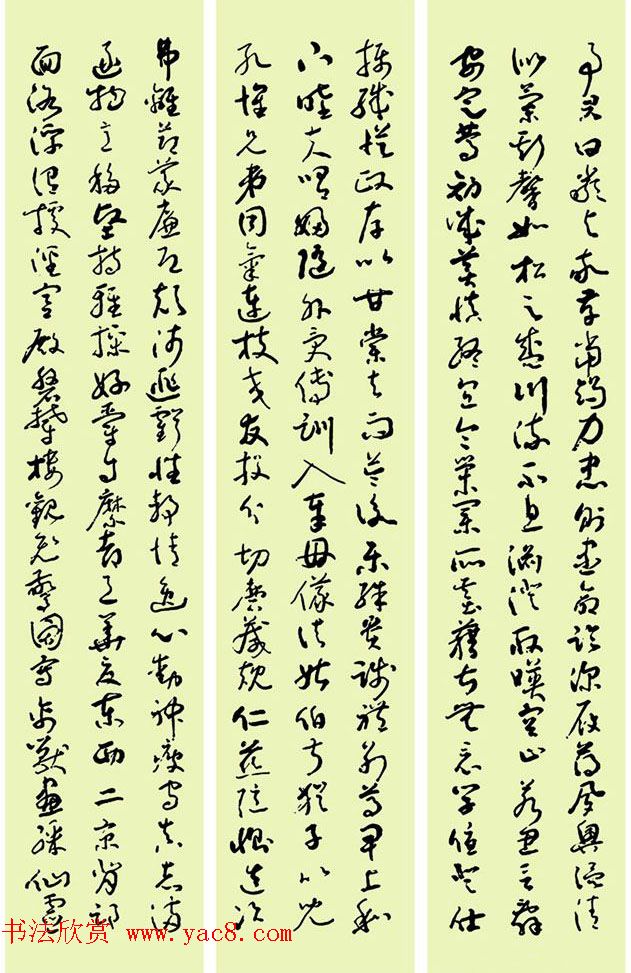 事君曰嚴與敬孝當竭力忠則盡命臨深履薄夙興溫凊
似蘭斯馨如松之盛川流不息淵澄取映容止若思言辭
安定篤初誠美慎終宜令榮業所基籍甚無竟學優登仕
攝職從政存以甘棠去而益詠樂殊貴賤禮別尊卑上和
下睦夫唱婦隨外受傅訓入奉母儀諸姑伯叔猶子比兒
孔懷兄弟同氣連枝交友投分切磨箴規仁慈隱惻造次
弗離節義廉退顛沛匪虧性靜情逸心動神疲守真志滿
逐物意移堅持雅操好爵自縻都邑華夏東西二京背邙
面洛浮渭據涇宮殿盤鬱樓觀飛驚圖寫禽獸畫彩仙靈
书法欣赏 www.yac8.com